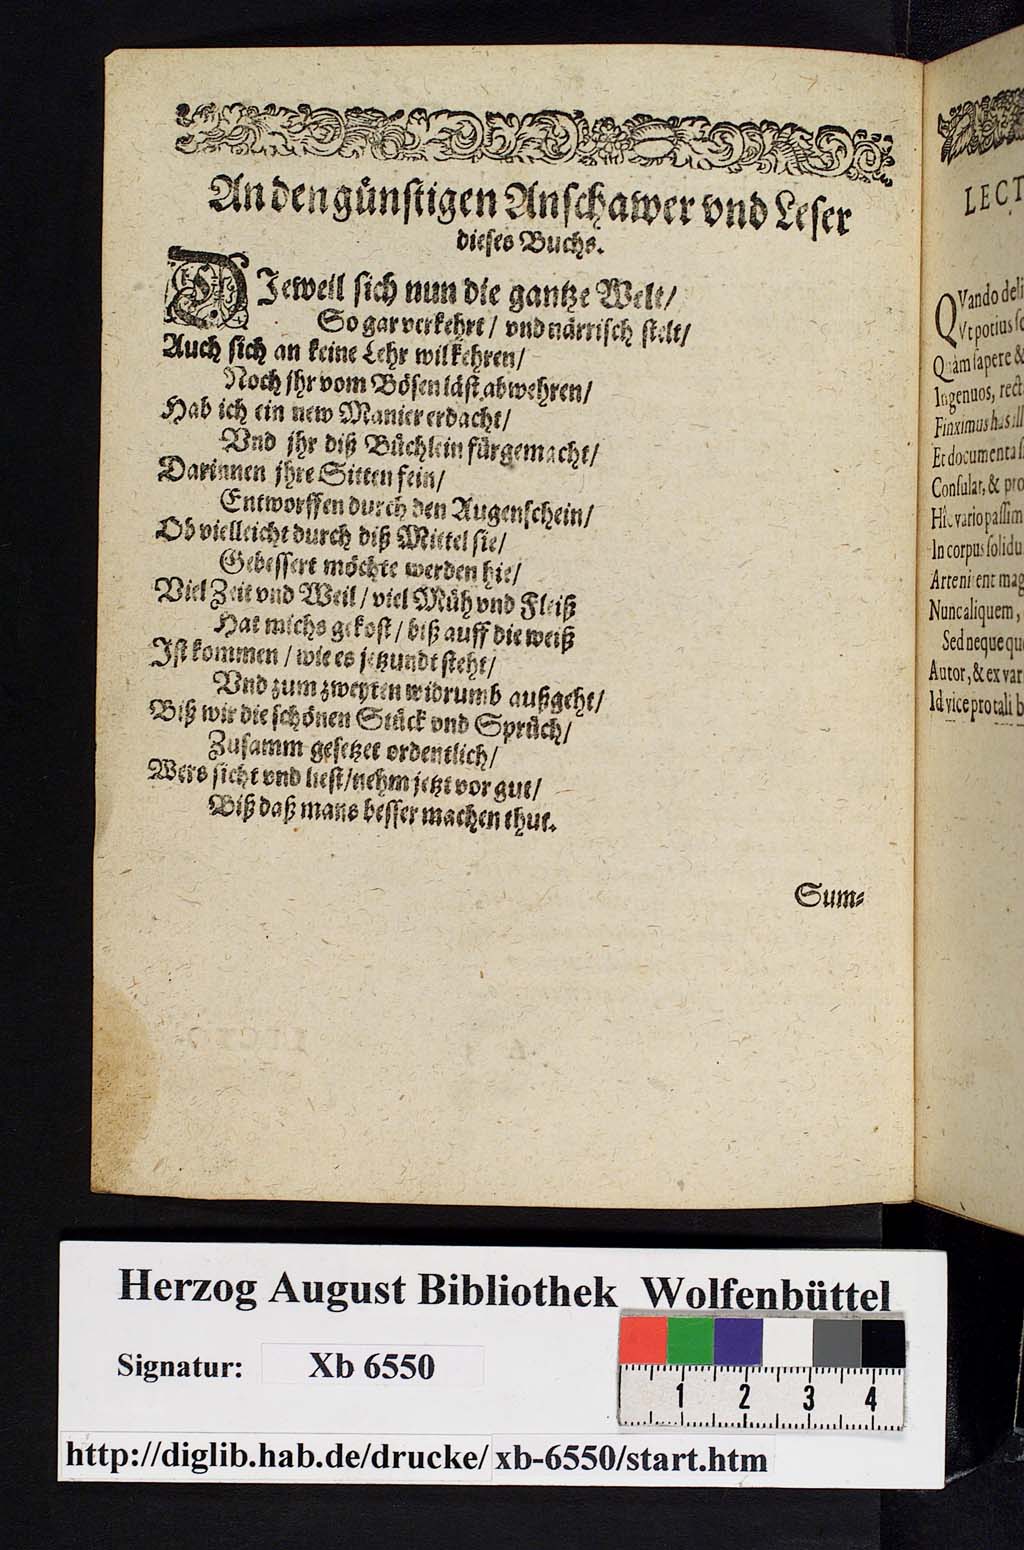 An den günstigen Anschawer vnd Leser
dieses Buchs.
DIeweil sich nun die gantze Welt/
So gar verkehrt/ vnd närrisch stelt/
Auch sich an keine Lehr wil kehren/
Noch jhr vom Bösen läst abwehren/
Hab ich ein new Manier erdacht/
Vnd jhr diß Büchlein fürgemacht/
Darinnen jhre Sitten fein/
Entworffen durch den Augenschein/
Ob vielleicht durch diß Mittel sie/
Gebessert möchte werden hie/
Viel Zeit vnd Weil/ viel Müh vnd Fleiß
Hat michs gekost/ biß auff die weiß
Ist kommen/ wie es jetzundt steht/
Vnd zum zweyten widrumb außgeht/
Biß wir die schönen Stück vnd Sprüch/
Zusamm gesetzet ordentlich/
Wers sicht vnd liest/ nehm jetzt vor gut/
Biß daß mans besser machen thut.
Sum-
LECT
QVando deli
Vt potius
Quàm sapere &
Ingenuos, rect
Finximus has ill
Et documenta
Consular, & pro
Hîc vario passim
In corpus solidu
Arte nitent mag
Nunc aliquem,
Sed neque qu
Autor, & ex var
Id vice pro tali b
Herzog August Bibliothek Wolfenbüttel
Signatur: Xb 6550
1 2 3 4
http://diglib.hab.de/drucke/ xb-6550/start.htm